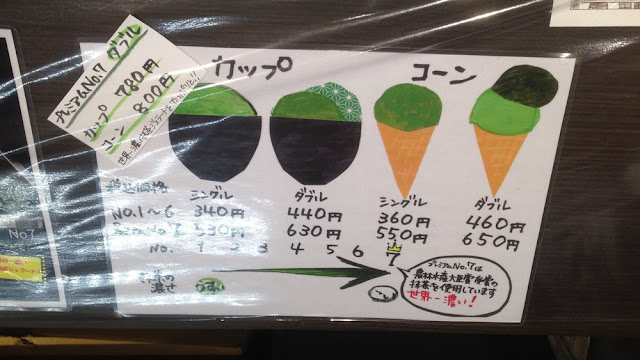 プレミアムNo.7 ダブル
カップ 780円
コーン 800円
カップ コーン
シングル ダブル シングル ダブル
No.1~6 340円 440円 360円 460円
530円 630円 550円 650円
No. 1 2 3 4 5 6 7
の
濃さ
うすい
プレミアムNo.7は
農林水産大臣賞受賞の
抹茶を使用しています
世界一濃い!
No1